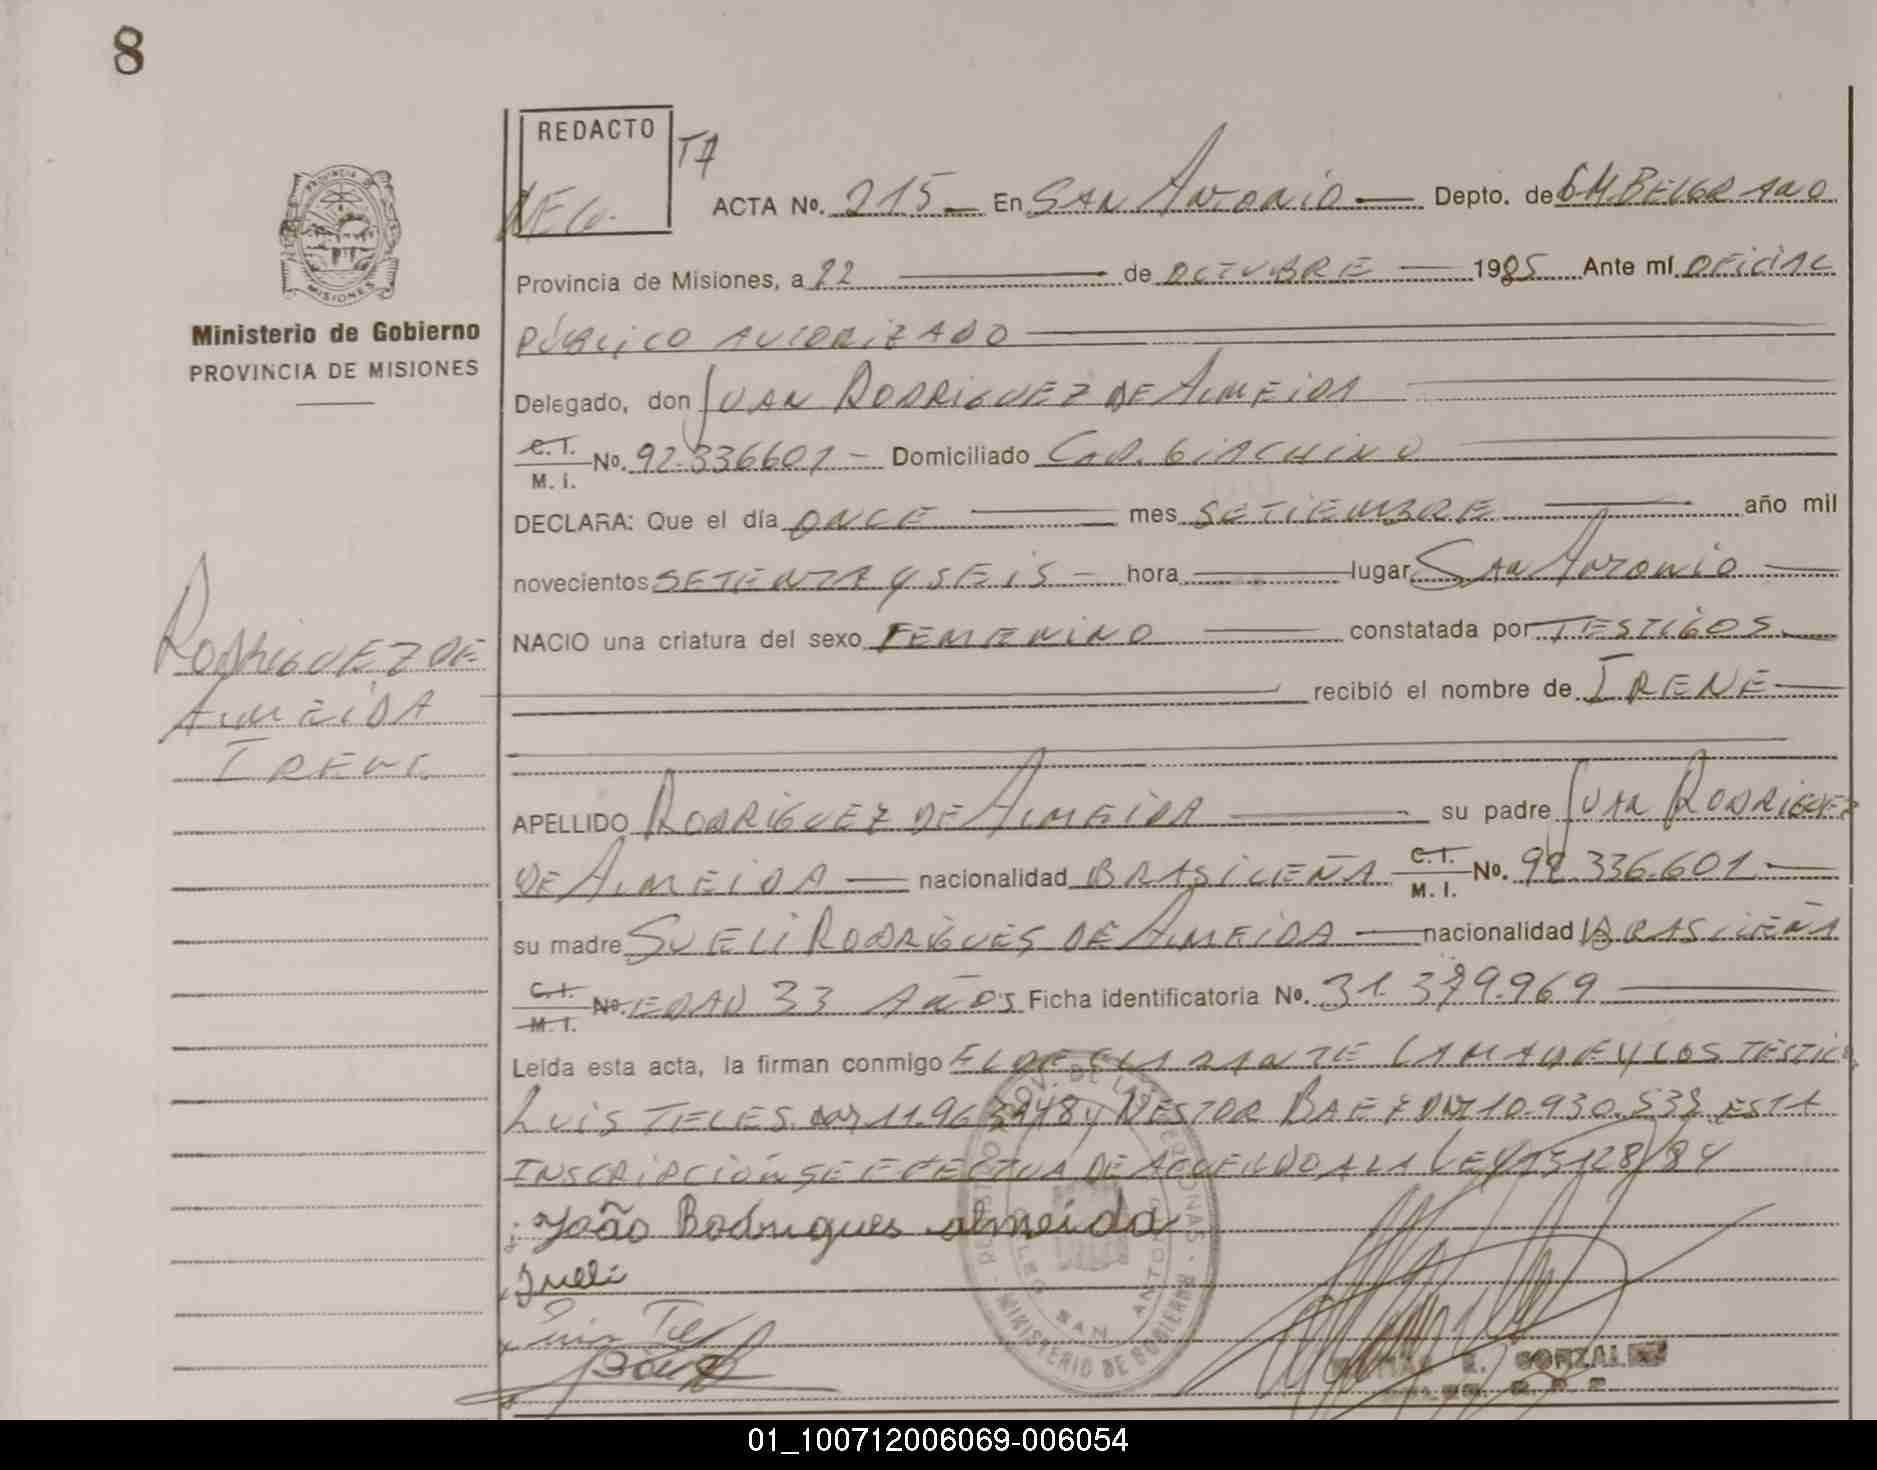 8
REDACTO
T7
ACTA No. 215 En SAN ANTONIO Depto. de G.M. BELGRANO
PROVINCIA
MISIONES
Ministerio de Gobierno
PROVINCIA DE MISIONES
Provincia de Misiones, a 22 de OCTUBRE 1985 Ante mí OFICIAL
PÚBLICO AUTORIZADO
Delegado, don JUAN RODRIGUEZ DE ALMEIDA
C.I.
M. I. No. 92.336601 - Domiciliado GIACHINO
DECLARA: Que el día ONCE mes SETIEMBRE año mil
novecientos SETENTA Y SEIS - hora lugar SAN ANTONIO
NACIO una criatura del sexo FEMENINO constatada por TESTIGOS
recibió el nombre de IRENE
RODRIGUEZ DE
ALMEIDA
IRENE
APELLIDO RODRIGUEZ DE ALMEIDA su padre JUAN RODRIGUEZ
DE ALMEIDA nacionalidad BRASILEÑA C.I. M. I. No. 92.336.601
su madre SUELI RODRIGUES DE ALMEIDA nacionalidad BRASILEÑA
C.I. M. I. No. EDAD 33 AÑOS Ficha identificatoria No. 31.379.969
Leída esta acta, la firman conmigo EL DECLARANTE LA MADRE Y LOS TESTIGOS
LUIS TELES Y NESTOR BAEZ DNI 10.930.533 ESTA
INSCRIPCIÓN SE EFECTUA DE ACUERDO A LA LEY 128/84
João Rodrigues almeida
Sueli
Luis Teles
Baez
MINISTERIO DE GOBIERNO
SAN ANTONIO
R. GONZALEZ
01_100712006069-006054